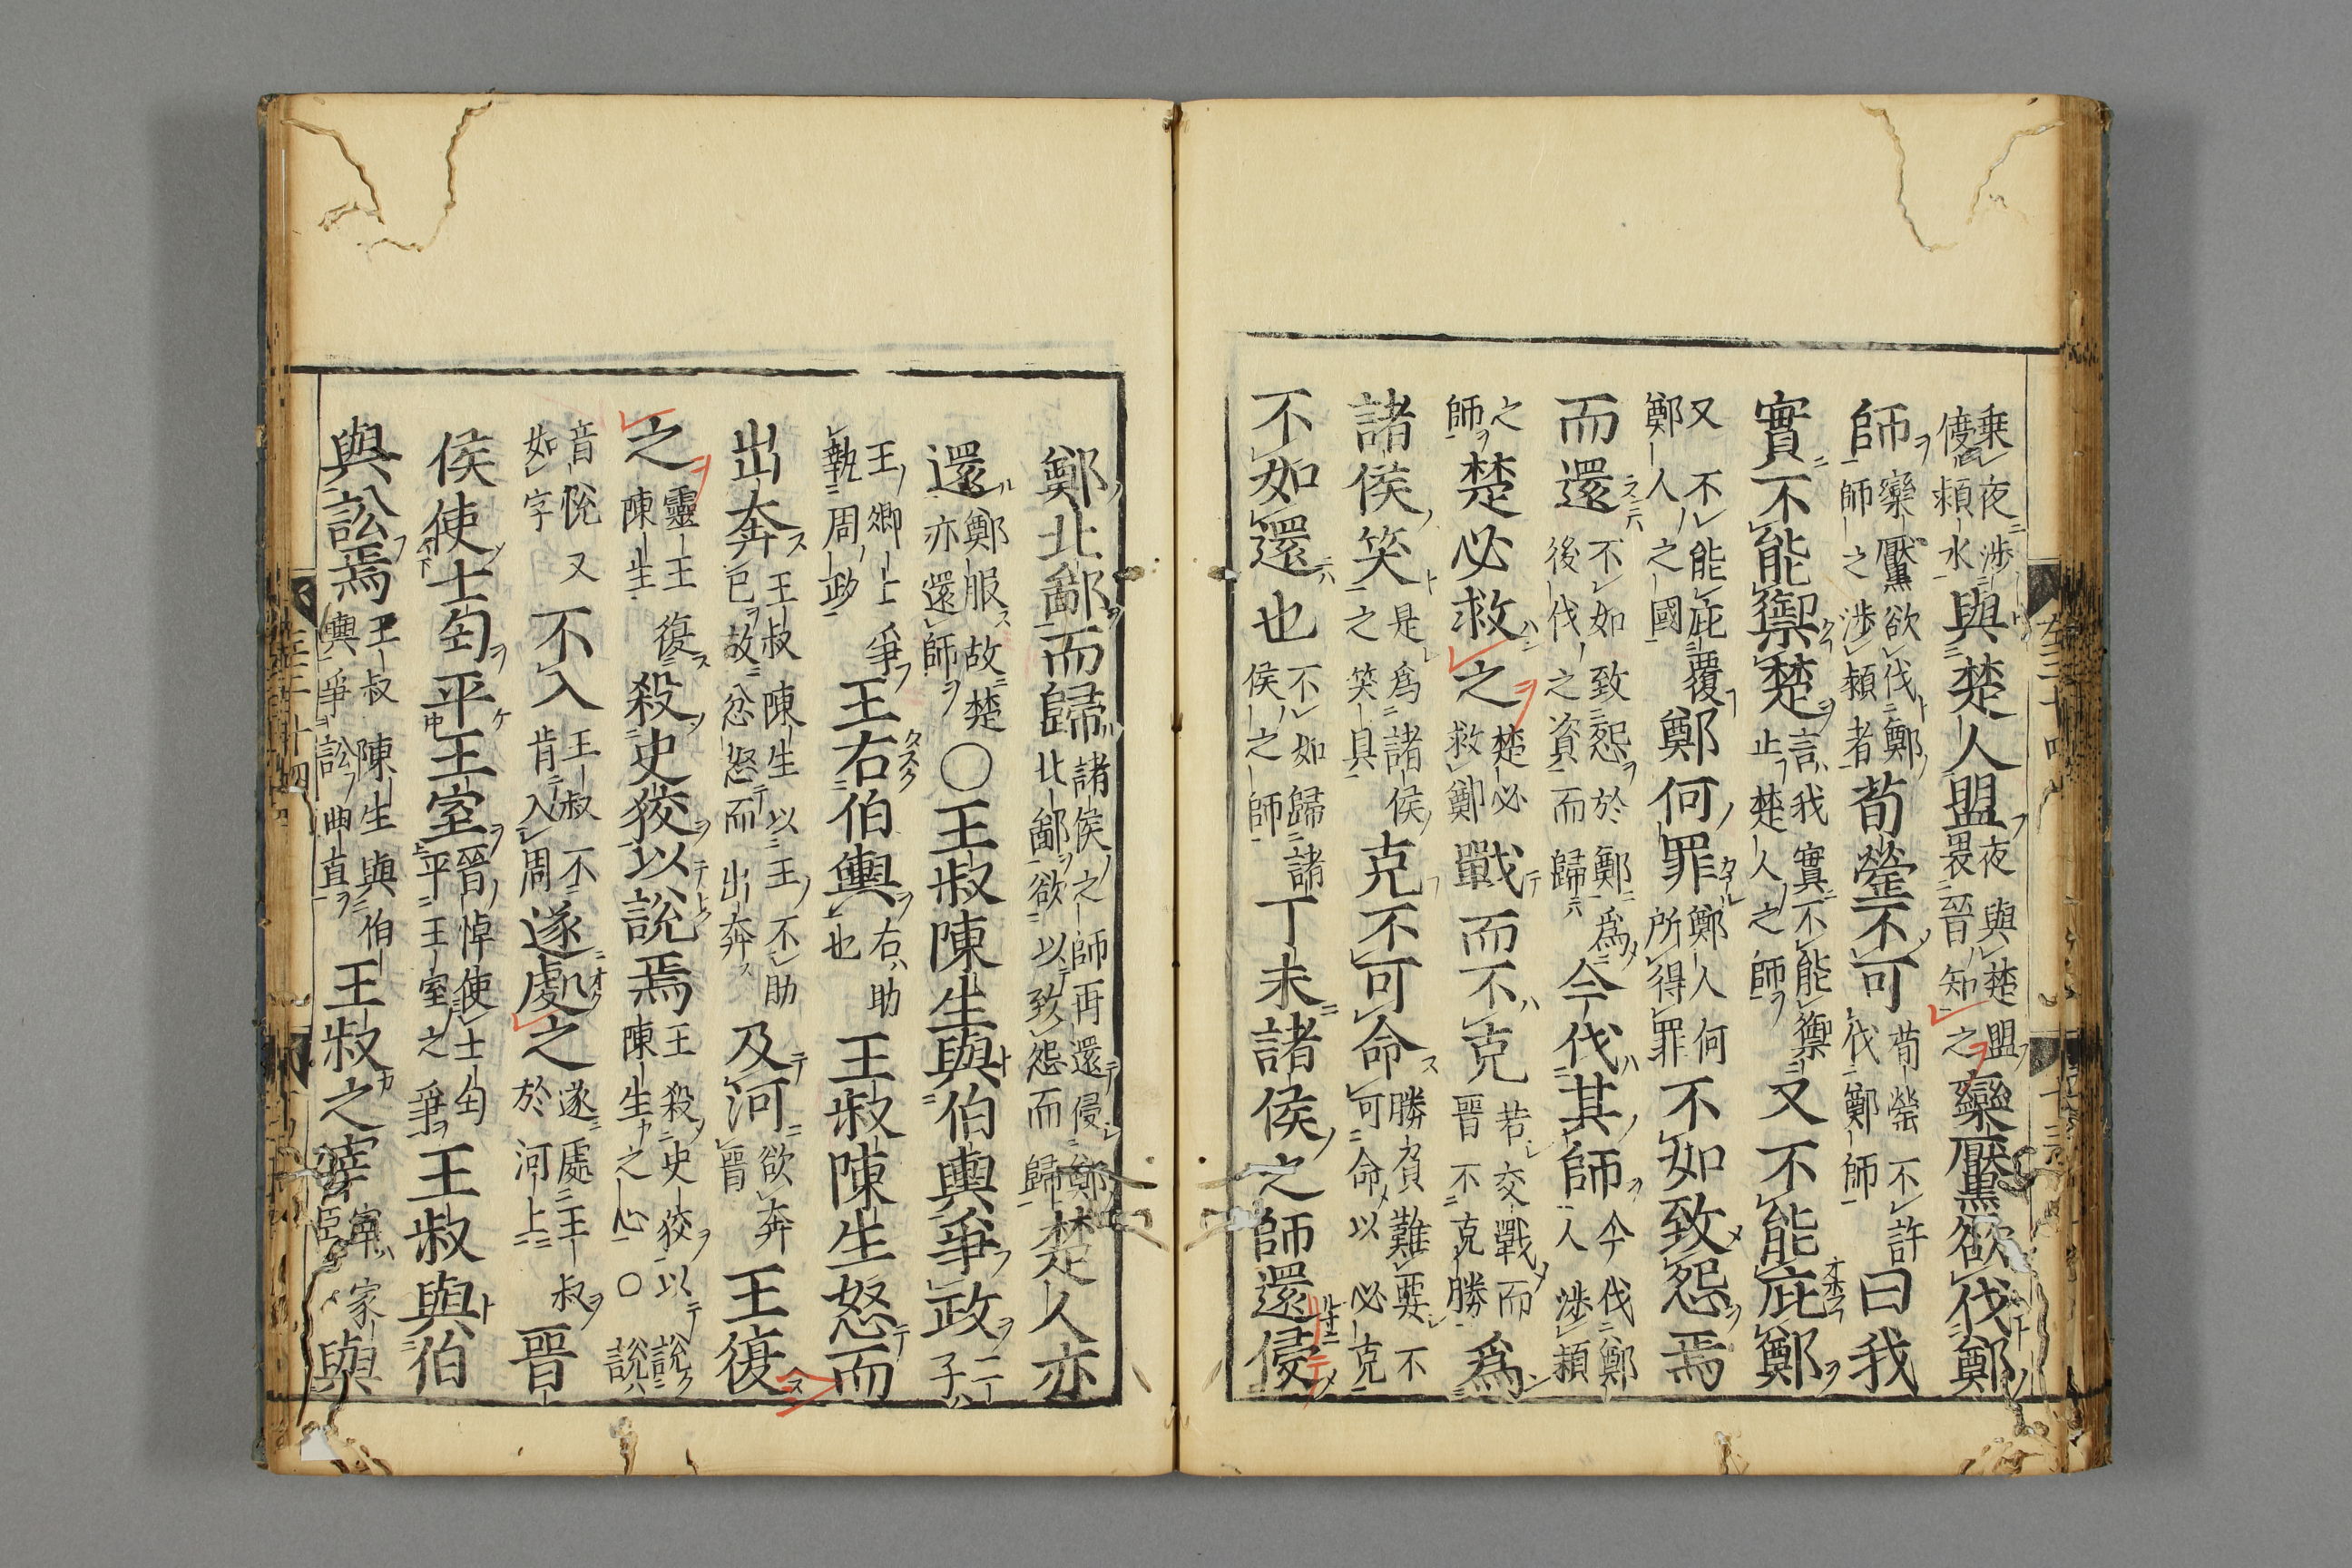 乗夜渉與楚人盟夜與楚盟欒黶欲伐鄭
潁水畏晉知之
師欒黶欲伐鄭荀罃不可荀罃不許曰我
師之渉潁者伐鄭師
實不能禦楚言我實不能禦又不能庇鄭
止楚人之師
又不能庇覆鄭何罪鄭人何不如致怨焉
鄭人之國所得罪
而還不如致怨於鄭爲今伐其師今伐鄭
後伐之資而歸人渉潁
之楚必救之楚必戰而不克若交戰而爲
師救鄭晉不克勝
諸侯笑是爲諸侯克不可命勝負難要不
之笑具可命以必克
不如還也不如歸諸丁未諸侯之師還侵
侯之師
鄭北鄙而歸諸侯之師再還侵鄭楚人亦
北鄙欲以致怨而歸
還鄭服故楚○王叔陳生與伯輿爭政二
亦還師子
王卿士爭王右伯輿右助王叔陳生怒而
執周政也
出奔王叔陳生以王不助及河欲奔王復
已故忿怒而出奔晉
之靈王復殺史狡以說焉王殺史狡以說
陳生陳生之心○說
音悅又不入王叔不遂處之遂處王叔晉
如字肯入周於河上
侯使士匄平王室晉悼使士匄王叔與伯
平王室之爭
與訟焉王叔陳生與伯王叔之宰宰家與
輿爭訟曲直臣